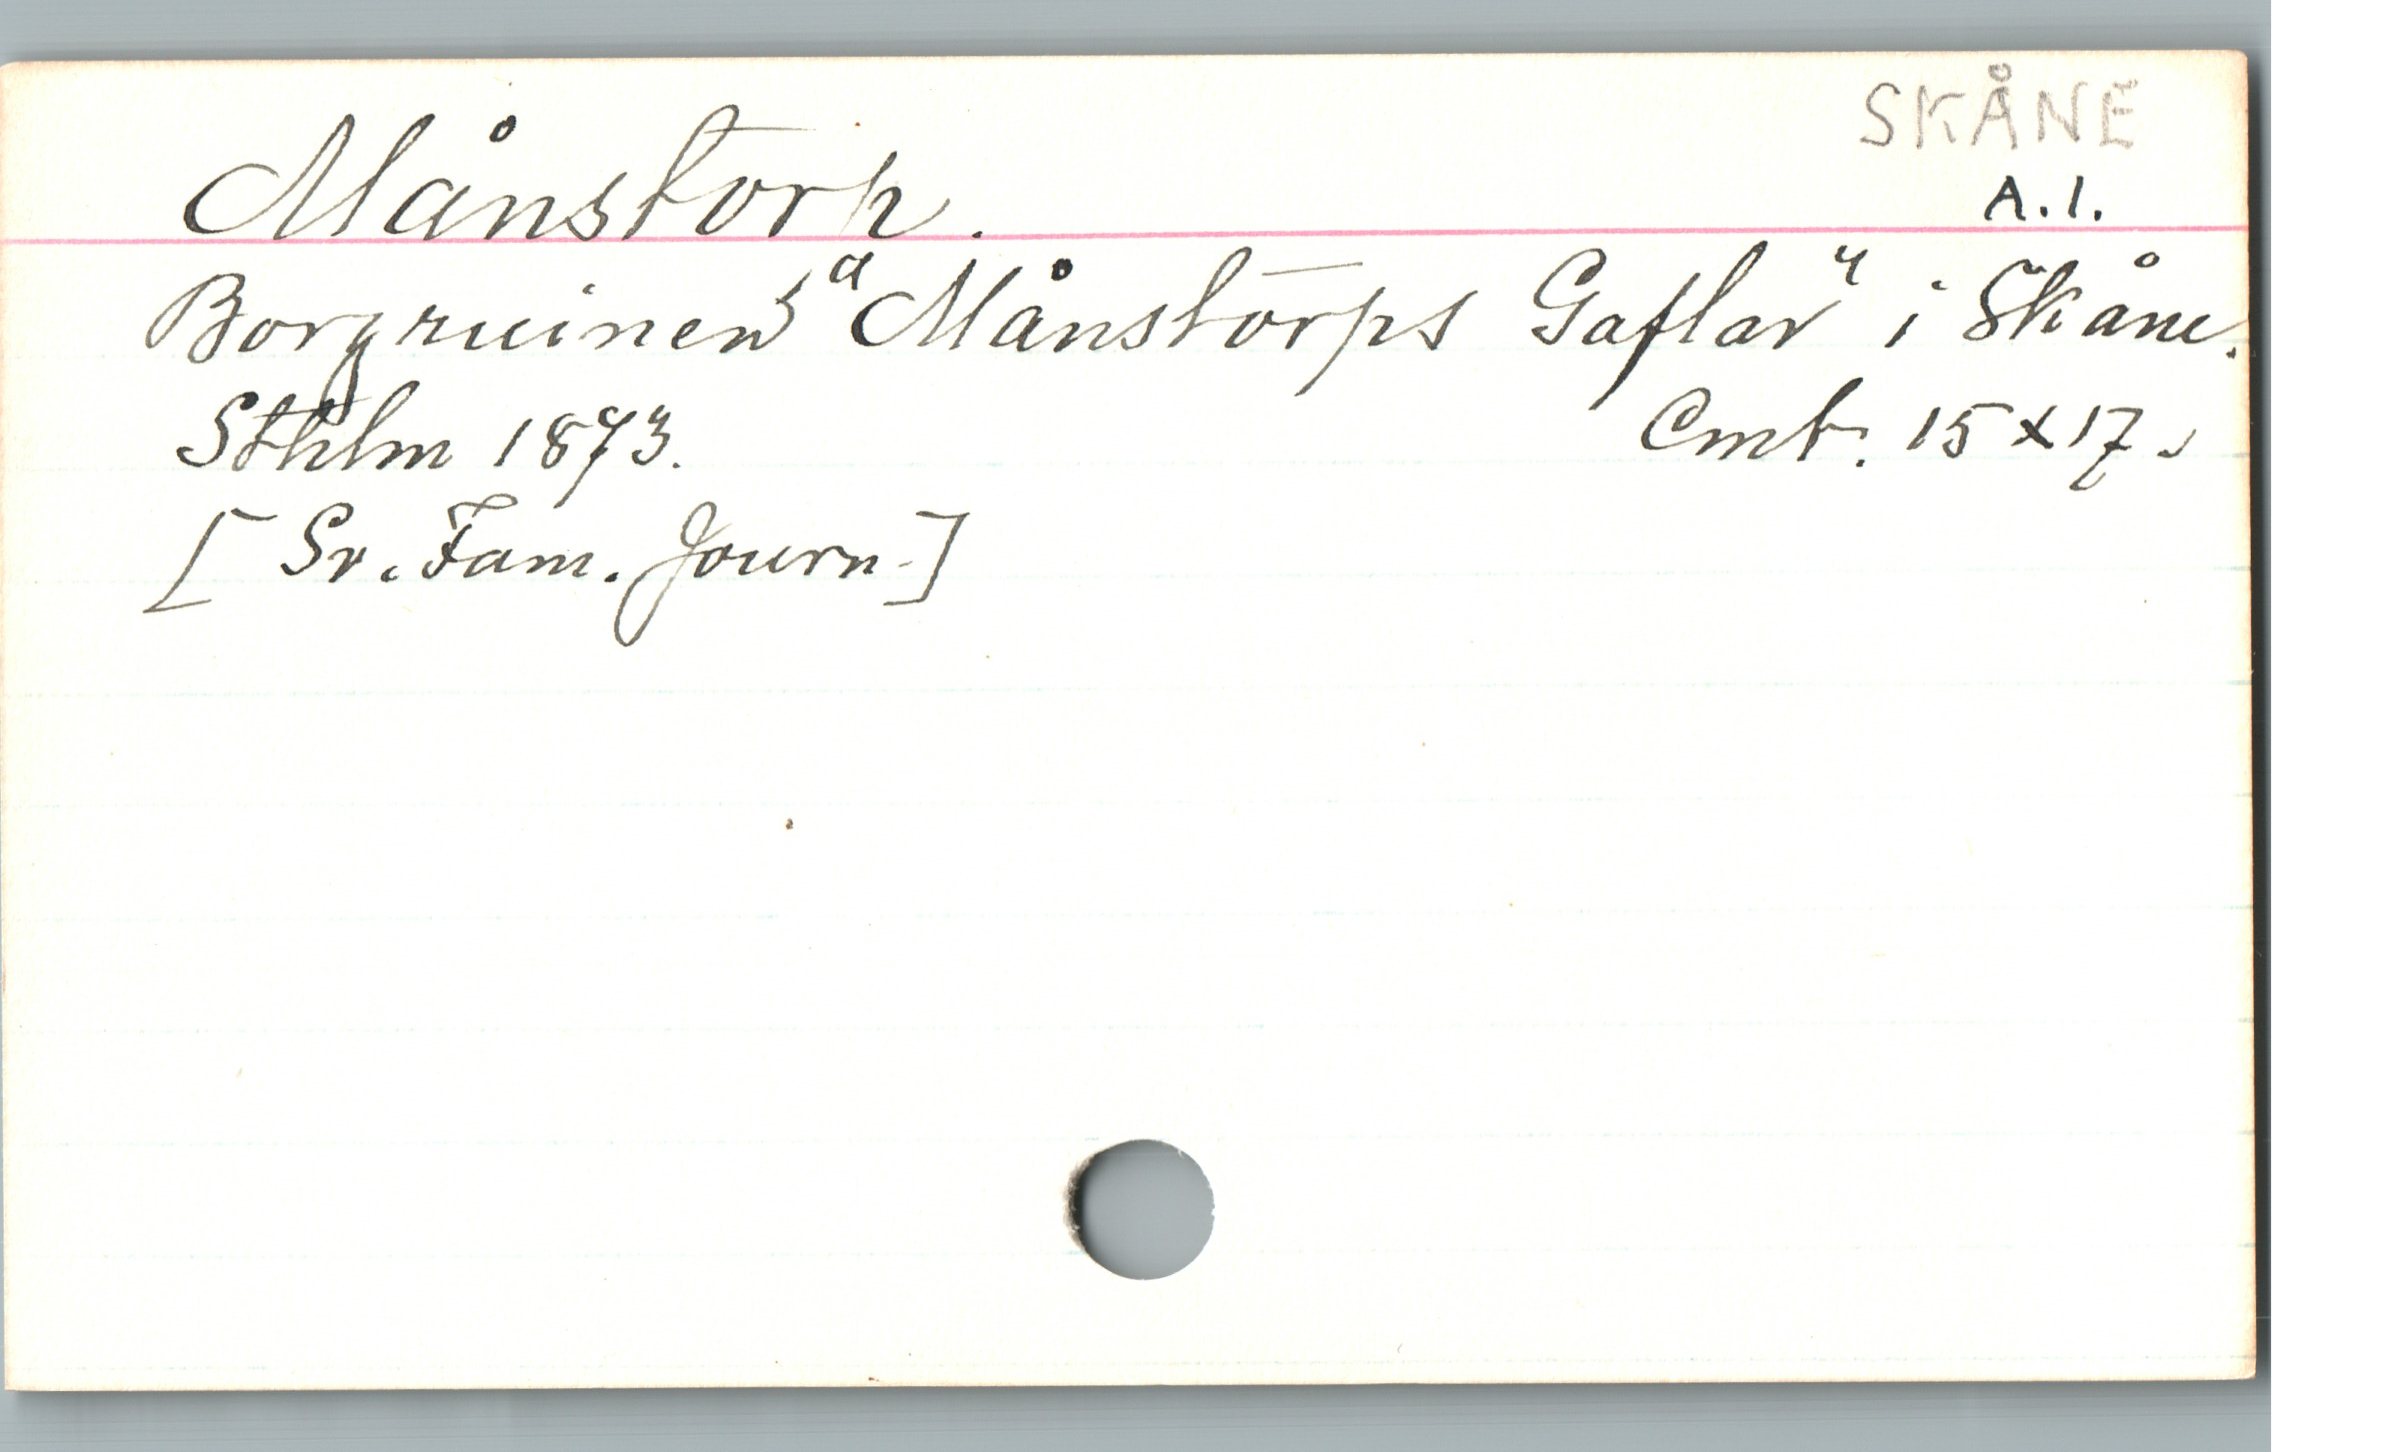 SKÅNE
Månstorp.
A.1.
Borgruinen "Månstorps Gaflar" i Skåne.
Sthlm 1873. Cmt. 15 x 17.
[Sv. Fam. Journ.]